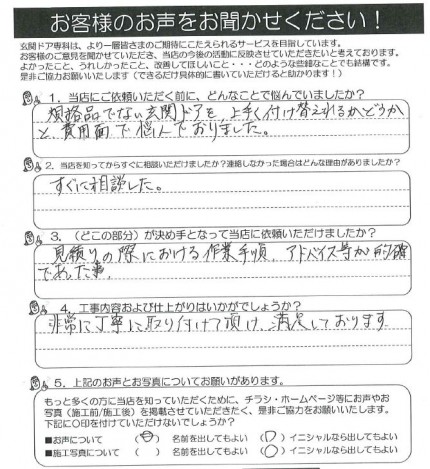 お客様のお声をお聞かせください！
玄関ドア専科は、より一層皆さまのご期待にこたえられるサービスを目指しています。
お客様のご意見を聞かせていただき、当店の今後の活動に反映させていただきたいと考えております。
よかったこと、うれしかったこと、改善してほしいこと・・・どのような些細なことでも結構です。
是非ご協力お願いいたします（できるだけ具体的に書いていただけると助かります！）
Q1．当店にご依頼いただく前に、どんなことで悩んでいましたか？
規格品でない玄関ドアを、上手く付け替えれるかどうか
と、費用面で悩んでおりました。
Q2．当店を知ってからすぐに相談いただけましたか？連絡しなかった場合はどんな理由がありましたか？
すぐに相談した。
Q3．（どこの部分）が決め手となって当店に依頼いただけましたか？
見積りの際における作業手順、アドバイス等が的確
であった事。
Q4．工事内容および仕上がりはいかがでしょうか？
非常に丁寧に取り付けて頂け、満足しております
Q5．上記のお声とお写真についてお願いがあります。
もっと多くの方に当店を知っていただくために、チラシ・ホームページ等にお声やお
写真（施工前/施工後）を掲載させていただきたく、是非ご協力をお願いいたします。
下記に〇印を付けていただけないでしょうか？
■お声について （〇） 名前を出してもよい （〇）イニシャルなら出してもよい
■施工写真について （ ） 名前を出してもよい （〇）イニシャルなら出してもよい